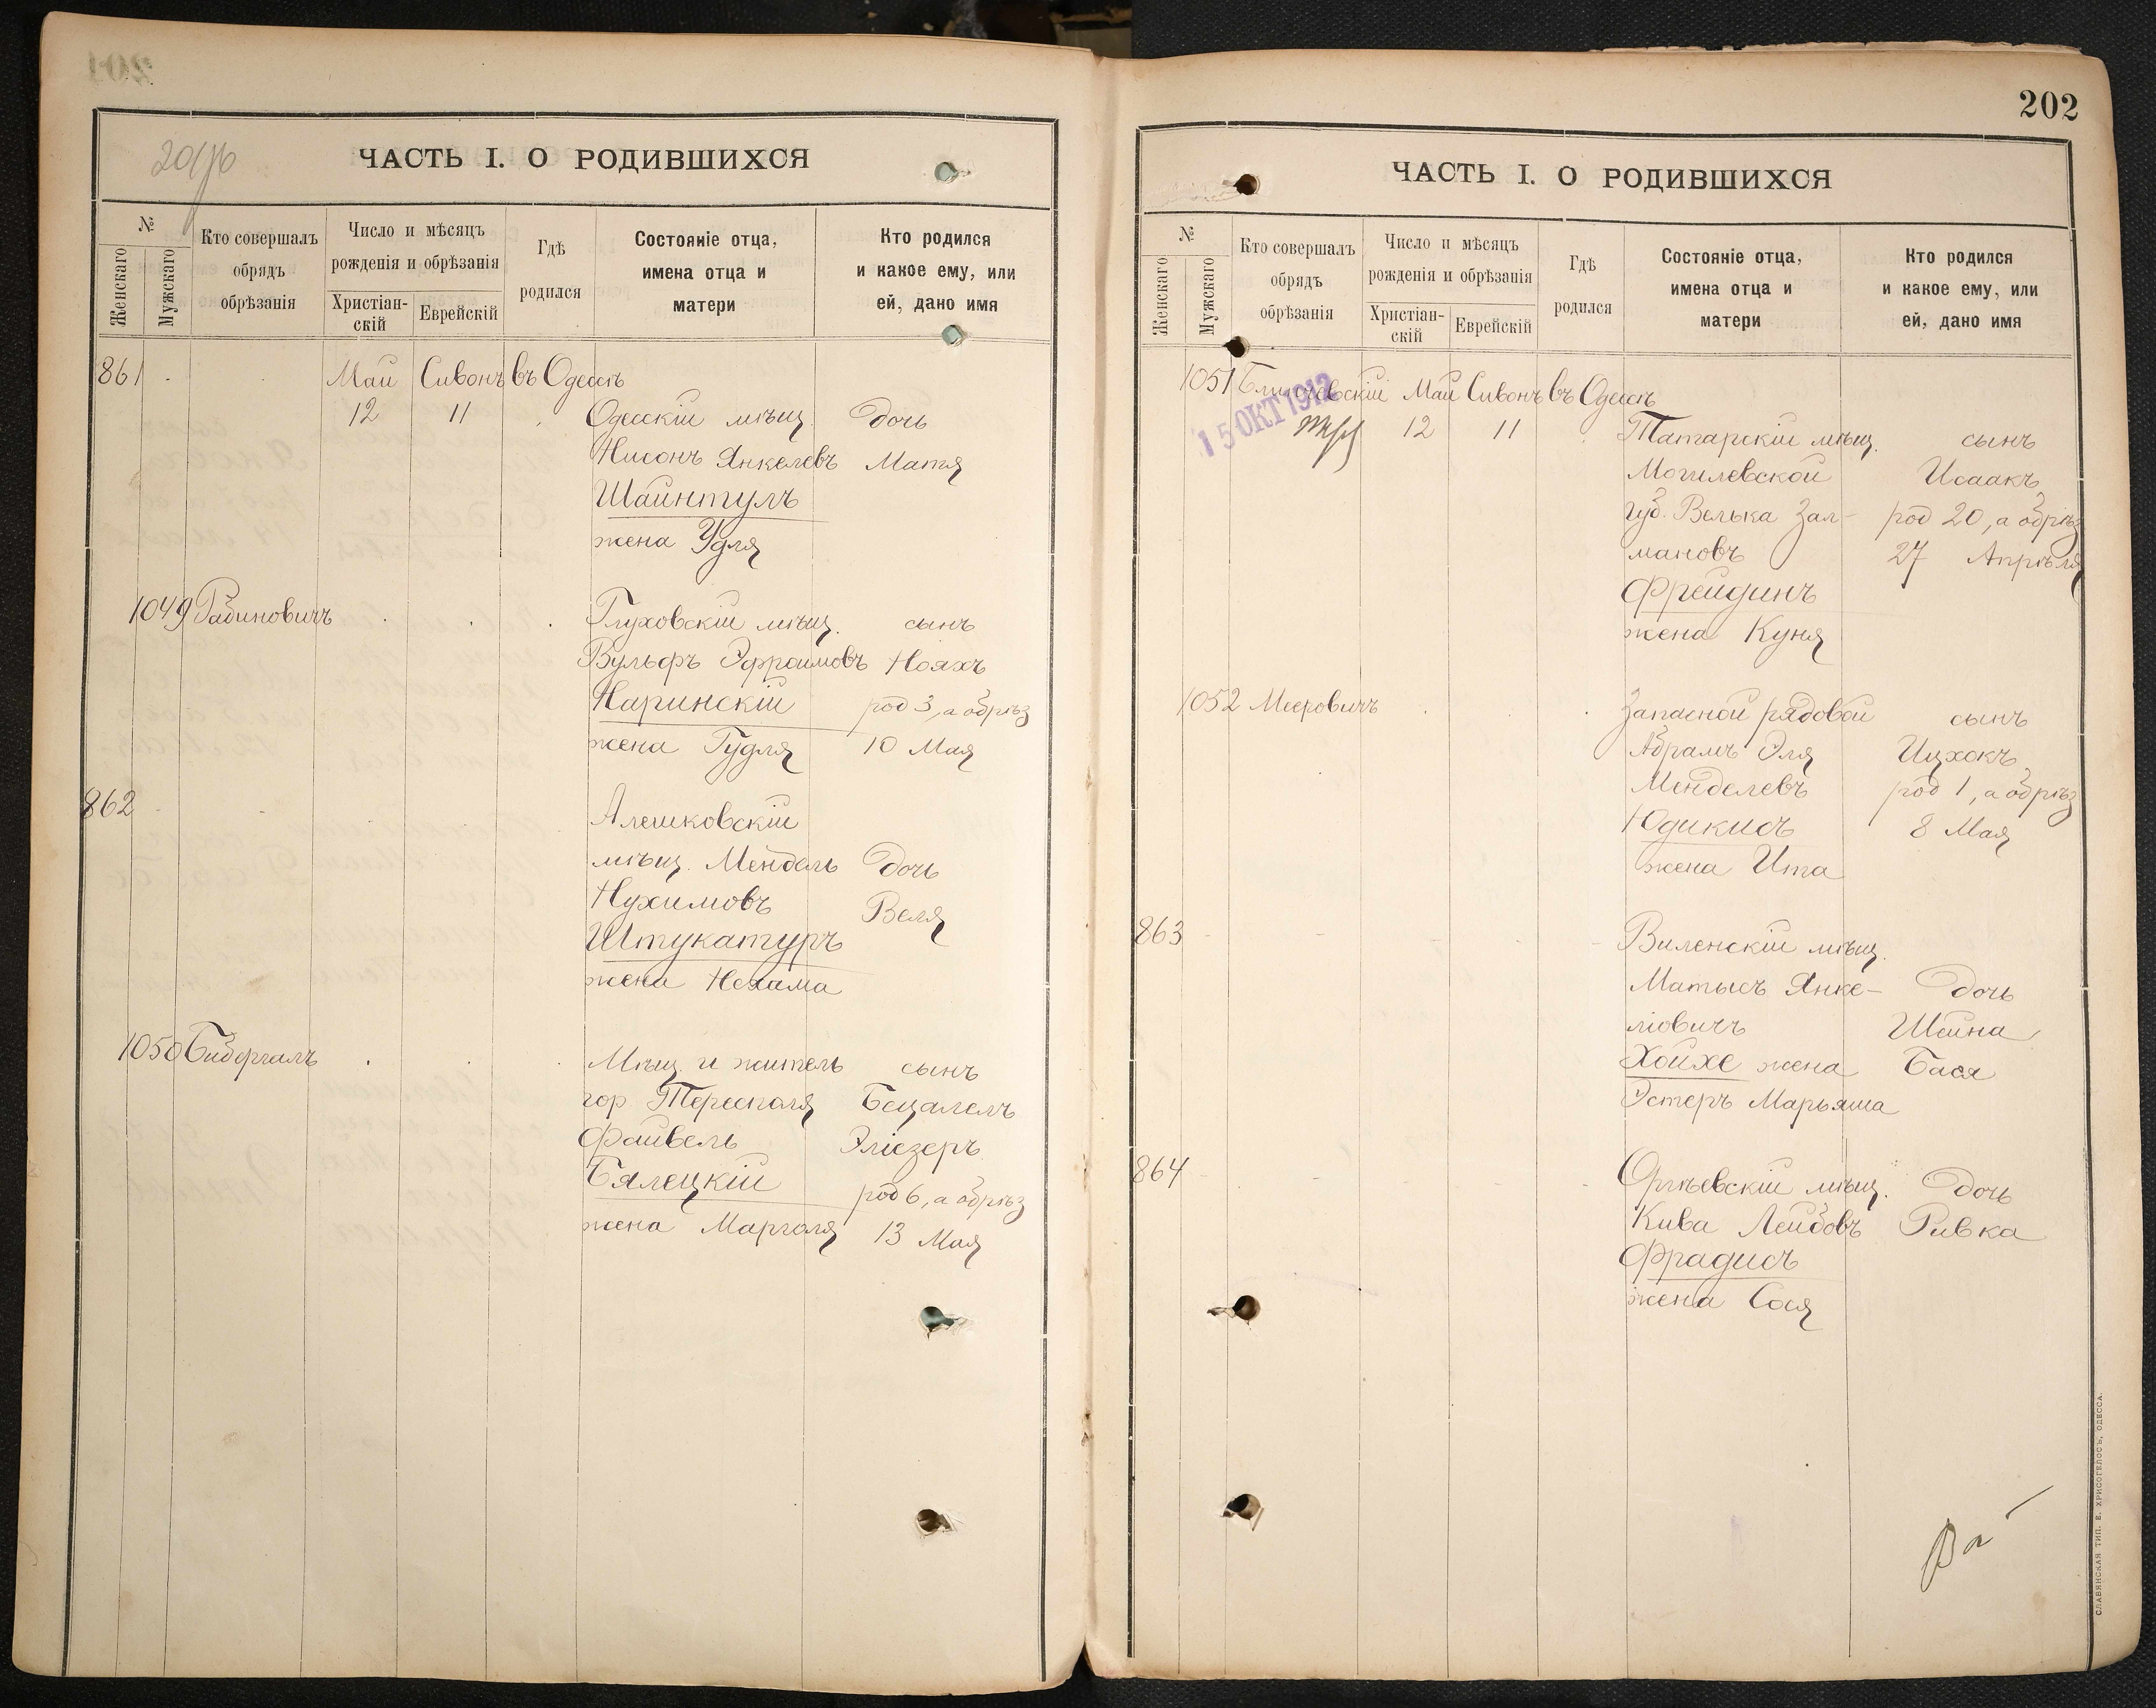 202
ЧАСТЬ I. О РОДИВШИХСЯ
№
Женскаго
Мужскаго
Кто совершалъ
обрядъ
обрѣзанія
Число и мѣсяцъ
рожденія и обрѣзанія
Христіан-
скій
Еврейскій
Гдѣ
родился
Состояніе отца,
имена отца и
матери
Кто родился
и какое ему, или
ей, дано имя
861 Май Сивонъ въ Одессѣ
12 11 Одесскій мѣщ. дочь
Нисонъ Янкелевъ Матя
Шайнтулъ
жена Удля
1049 Рабиновичъ Глуховскій мѣщ. сынъ
Вульфъ Эфраимовъ Нояхъ
Наринскій род 3, а обрѣз
жена Гудля 10 Мая
862
Алешковскій
мѣщ. Мендель дочь
Нухимовъ Веля
Штукатуръ
жена Нехама
1050 Бибергалъ Мѣщ. и житель сынъ
гор. Тересполя Бецалелъ
Файвель Эліезеръ
Бялецкій род 6, а обрѣз
жена Марголя 13 Мая
ЧАСТЬ I. О РОДИВШИХСЯ
№
Женскаго
Мужскаго
Кто совершалъ
обрядъ
обрѣзанія
Число и мѣсяцъ
рожденія и обрѣзанія
Христіан-
скій
Еврейскій
Гдѣ
родился
Состояніе отца,
имена отца и
матери
Кто родился
и какое ему, или
ей, дано имя
1051 Май Сивонъ въ Одессѣ
15 ОКТ 1912
12 11 Татарскій мѣщ. сынъ
Могилевской Исаакъ
губ. Велька Зал- род 20, а обрѣз
мановъ 27 Апрѣля
Фрейдинъ
жена Куня
1052 Мееровичъ Запасной рядовой сынъ
Абрамъ Эля Ицхокъ
Менделевъ род 1, а обрѣз
Юдикисъ 8 Мая
жена Ита
863 Виленскій мѣщ.
Матысъ Янке- дочь
ліовичъ Шейна
Хойхе жена Бася
Эстеръ Марьяша
864 Оргѣевскій мѣщ. дочь
Кива Лейбовъ Ривка
Фрадисъ
жена Сося
СЛАВЯНСКАЯ ТИП. Е. ХРИСОГЕЛОСЪ, ОДЕССА.